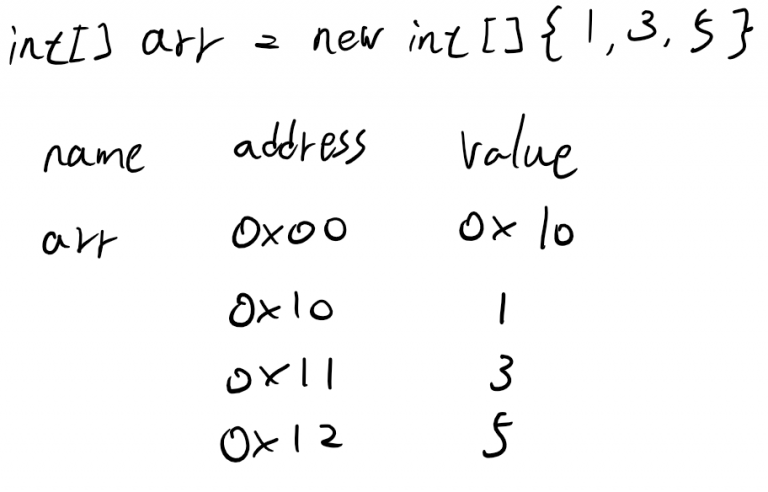 int[] arr = new int[]{1,3,5}
name address value
arr 0x00 0x10
0x10 1
0x11 3
0x12 5